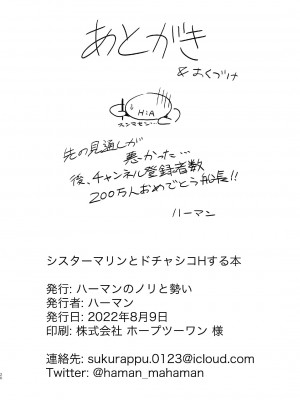 あとがき
&おくづけ
HiA
スンマセン…
先の見通しが
悪かった…
後、チャンネル登録者数
200万人おめでとう船長!!
ハーマン
シスターマリンとドチャシコHする本
発行: ハーマンのノリと勢い
発行者: ハーマン
発行日: 2022年8月9日
印刷: 株式会社 ホープツーワン 様
連絡先: sukurappu.0123@icloud.com
Twitter: @haman_mahaman